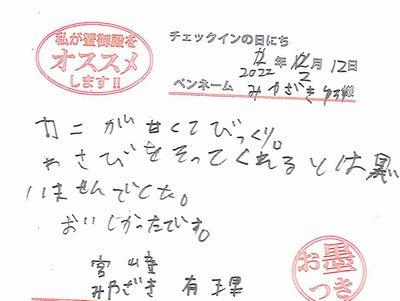 私が蟹御殿を
オススメ
します!!
チェックインの日にち
2022年12月12日
ペンネーム みやざき 様
カニが甘くてびっくり。
わさびをそってくれるとは思
いませんでした。
おいしかったです。
宮
みやざき 有
お墨
つき